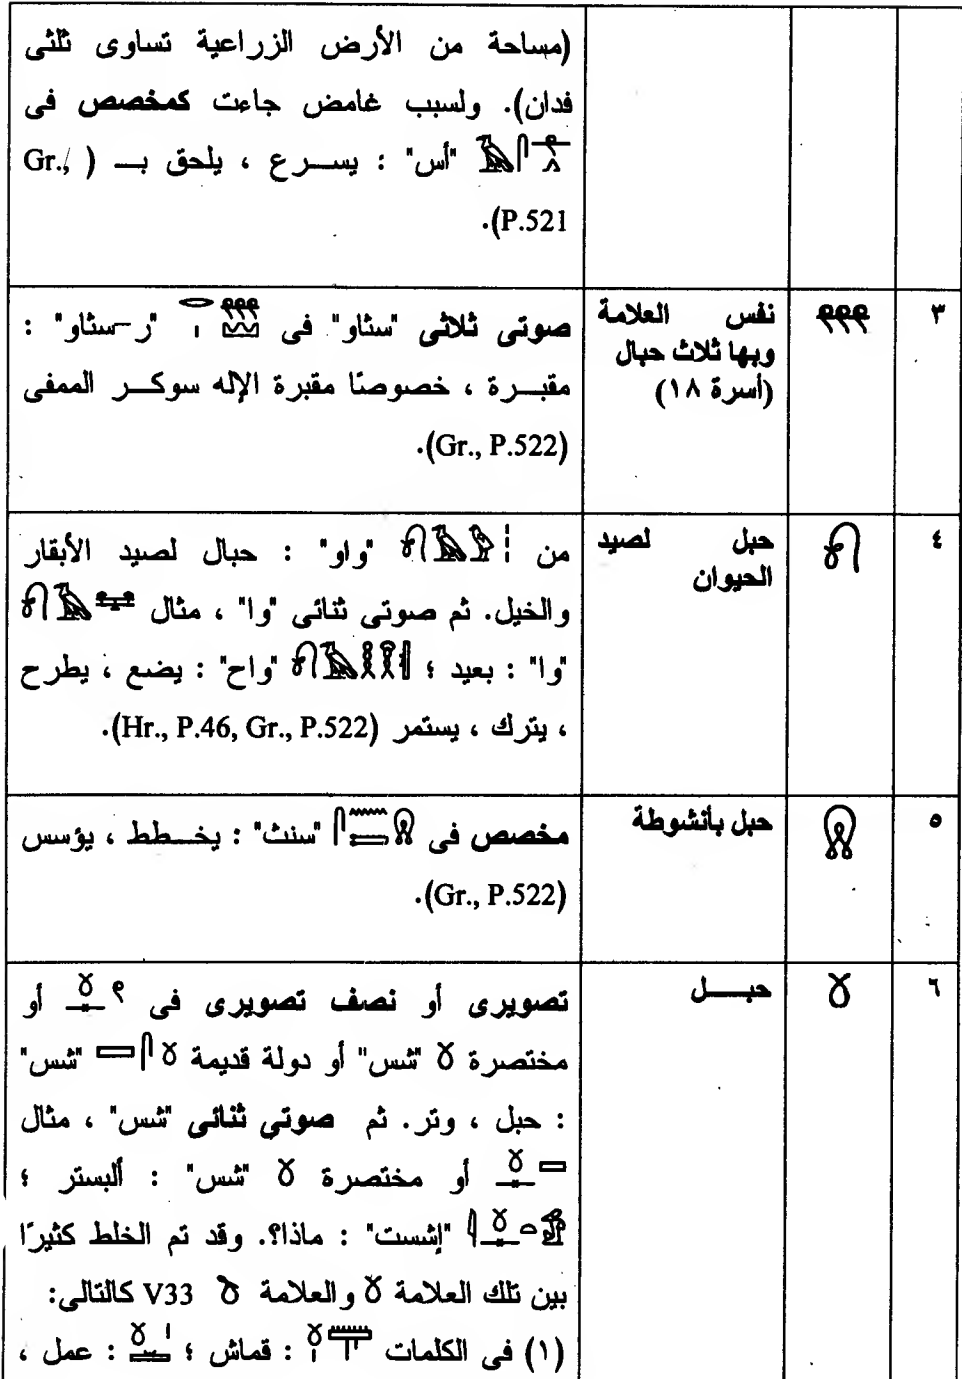 (مساحة من الأرض الزراعية تساوى ثلثى
فدان). ولسبب غامض جاءت كمخصص فى
"أس" : يسرع ، يلحق بـ (Gr.,
P.521).
٣
نفس العلامة
وبها ثلاث حبال
(أسرة ١٨)
صوتى ثلاثى "سثاو" فى "ر-سثاو" :
مقبرة ، خصوصًا مقبرة الإله سوكر الممفى
(Gr., P.522).
٤
حبل لصيد
الحيوان
من "واو" : حبال لصيد الأبقار
والخيل. ثم صوتى ثنائى "وا" ، مثال
"وا" : بعيد ؛ "واح" : يضع ، يطرح
، يترك ، يستمر (Hr., P.46, Gr., P.522).
٥
حبل بأنشوطة
مخصص فى "سنث" : يخطط ، يؤسس
(Gr., P.522).
٦
حبل
تصويرى أو نصف تصويرى فى أو
مختصرة "شس" أو دولة قديمة "شس"
: حبل ، وتر. ثم صوتى ثنائى "شس" ، مثال
أو مختصرة "شس" : ألبستر ؛
"إشست" : ماذا؟. وقد تم الخلط كثيرًا
بين تلك العلامة والعلامة V33 كالتالى:
(١) فى الكلمات : قماش ؛ : عمل ،